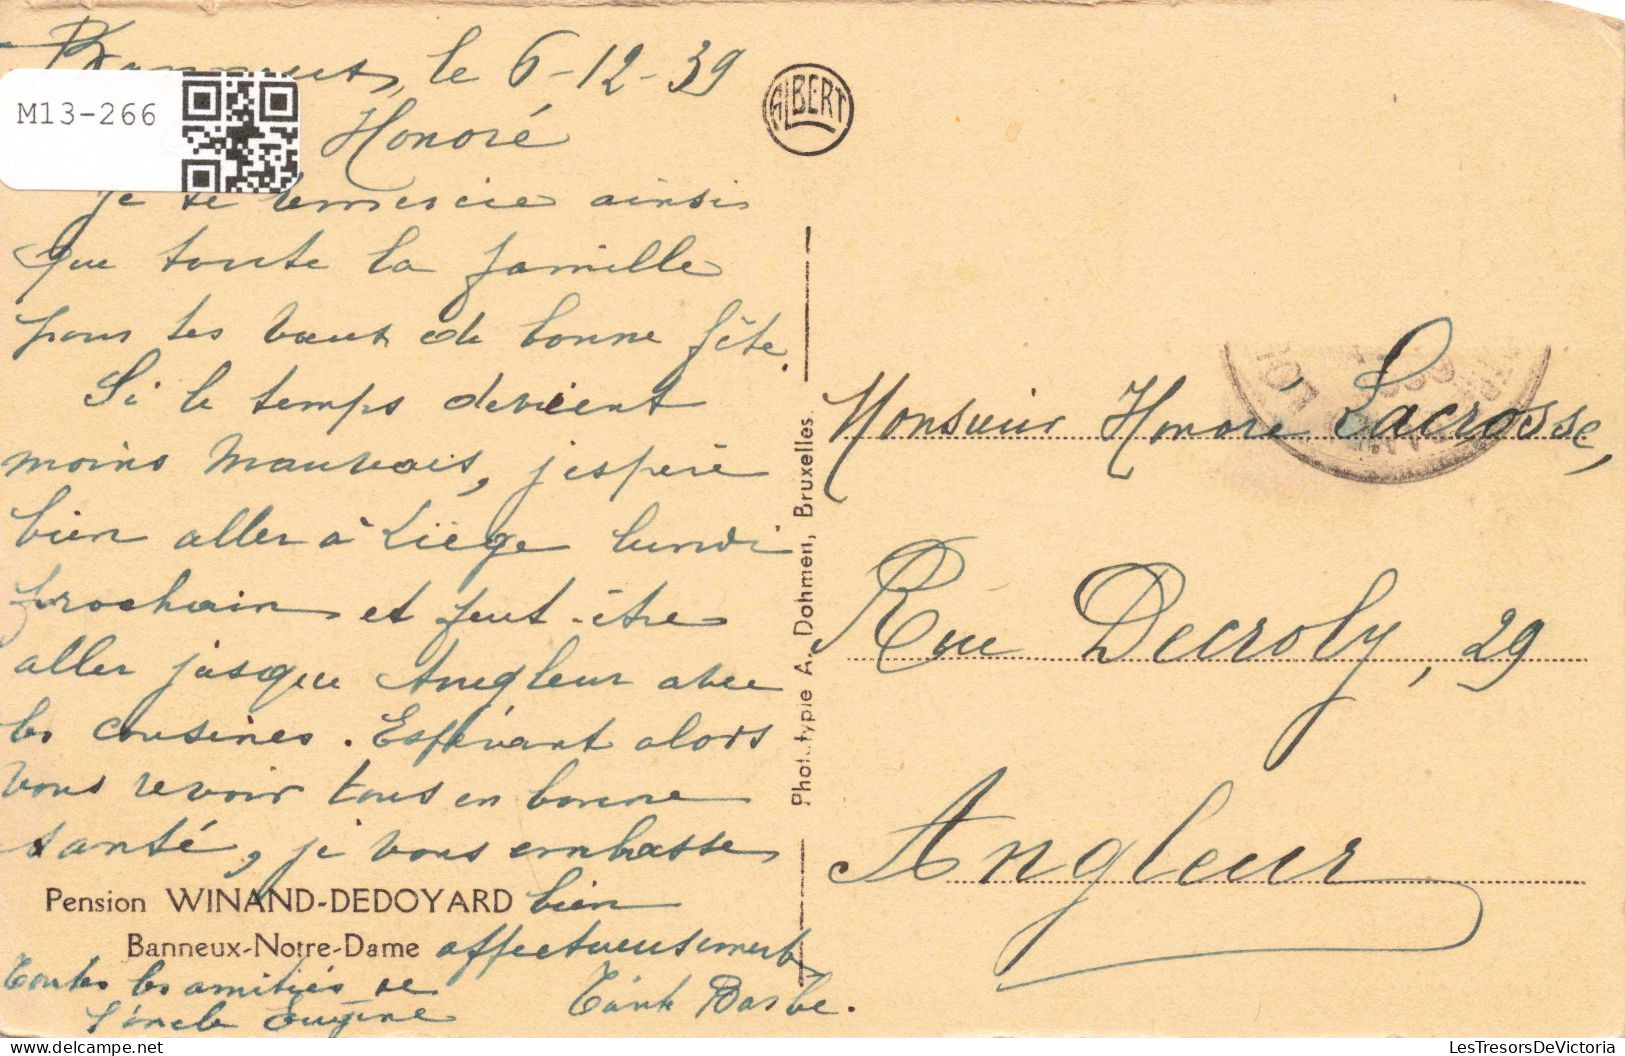 le 6-12-39
M13-266
Honoré
ALBERT
je te remercie ainsi
que toute la famille
pour tes vœux de bonne fête.
Si le temps devient
moins mauvais, j'espère
bien aller à Liège lundi
prochain et peut-être
aller jusque Angleur avec
les cousines. Espérant alors
vous revoir tous en bonne
santé, je vous embrasse
bien
affectueusement
Tante Barbe.
Toutes les amitiés de
l'oncle Eugène
Pension WINAND-DEDOYARD
Banneux-Notre-Dame
Phototypie A. Dohmen, Bruxelles
Monsieur Honoré Lacrosse,
Rue Decroly, 29
Angleur
LesTresorsDeVictoria